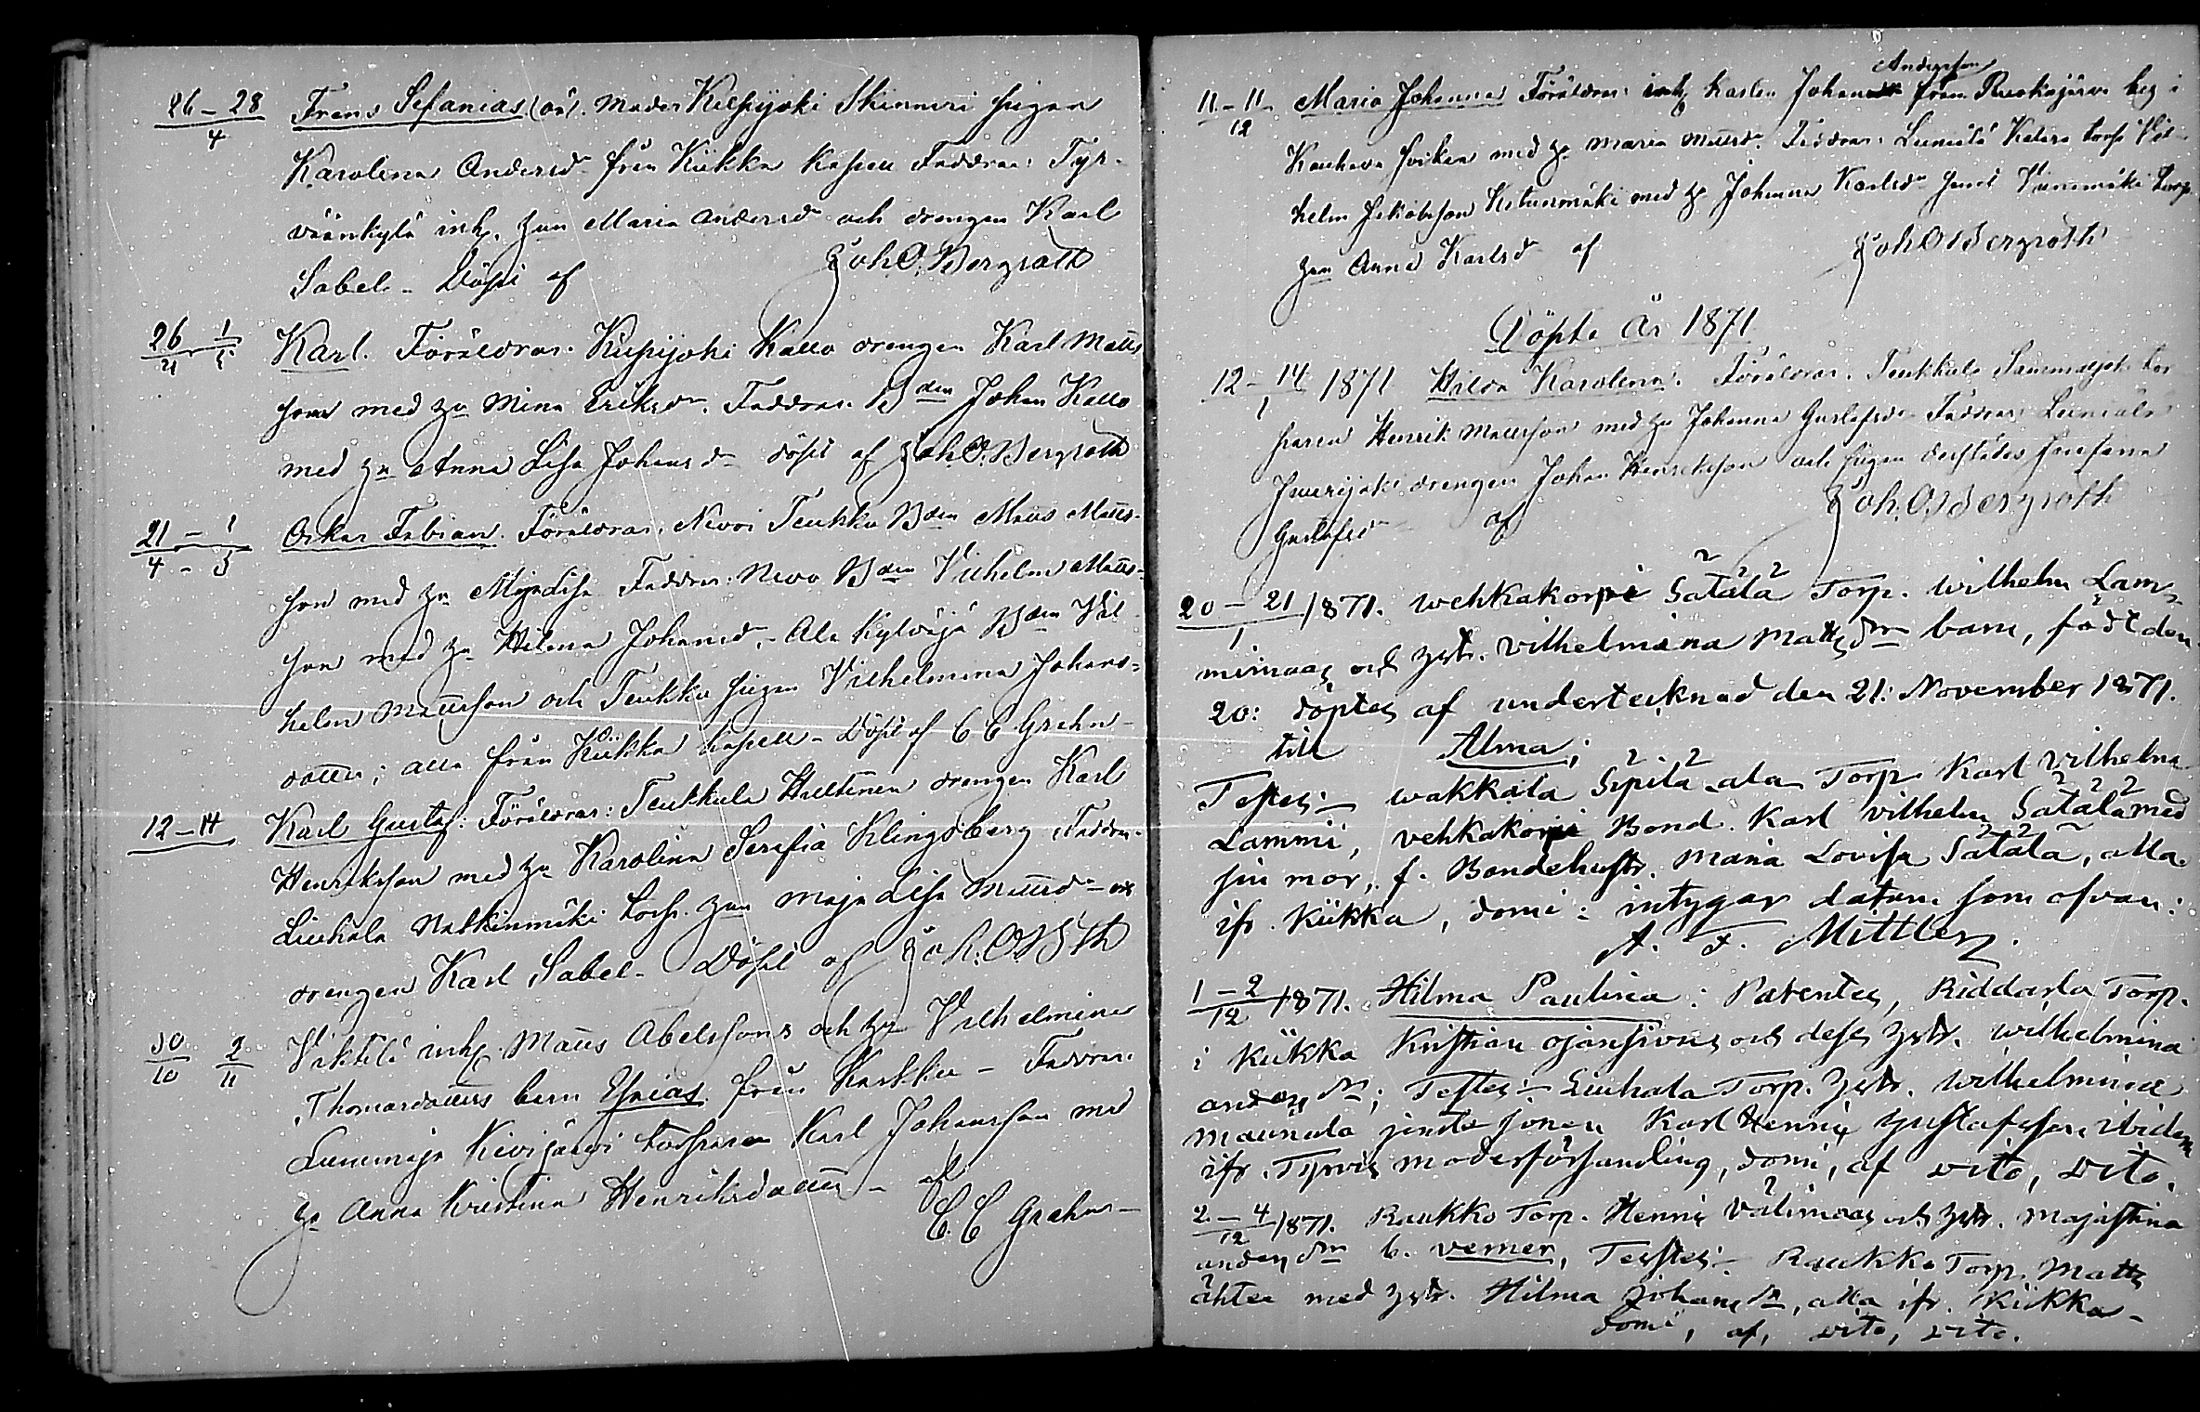 26 – 28
4
Frans Sefanias (oä). Moder Kiepijoki Skinnari pigan
Karolina Andersdr från Kiikka Kapell Faddrar: Tyr-
väänkylä inh. Maria Andersdr och drengen Karl
Sabel – Döpt af Joh. O. Bergroth
26 1
4 5
Karl. Föräldrar. Kiepijoki Kallo drengen Karl Matts
son med Mina Eriksdr. Faddrar. Bden Johan Kallo
med Anna Lisa Johansdr döpt af Joh. O. Bergroth
21 – 1
4 – 5
Oskar Fabian. Föräldrar. Novi Teukku Bden Matts Matts-
son med Maja Lisa Faddrar. Bden Vilhelm Matts-
son med Helena Johansdr. – Ala Kylväjä Bden Vil-
helm Mattsson och Teukku pigan Vilhelmina Johans-
dotter; alla från Kiikka kapell – Döpt af C C Grahn –
12 – 14
Karl Gustaf: Föräldrar: Teukkula Hiettinen drengen Karl
Henriksson med Karolina Serafia Klingsberg Faddrar.
Liuhala Natkinmäki torp. Maja Lisa Mattsdr och
drengen Karl Sabel – Döpt af Joh: O Bgth
30 2
10 11
inh. Matts Abelssons och Vilhelmina
Thomasdotters barn Esaias. från Karkku – Faddrar.
Kivijärvi torparen Karl Johansson med
Anna Kristina Henriksdotter – af
C. C Grahn –
11 – 11
12
Maria Johanna Föräldrar: inh karlen Johan Andersson från
med Maria Mattsdr. Faddrar. torp Vil-
helm Jakobsson Ketunmäki med Johanna Karlsdr torp.
Anna Karlsdr af Joh O Bergroth
Döpte År 1871
12 – 14 1871
1
Hilda Karolina. Föräldrar. Teukkula Sammaljoki tor
paren Henrik Mattsson med Johanna Gustafsdr Faddrar:
drengen Johan Henriksson och pigan derstädes Josefina
Gustafsdr af Joh. O. Bergroth
20 – 21 1871. Wehkakorpi Sätälä Torp. Wilhelm Lam-
1
minmaas och hstr. Vilhelmina Mattsdrs barn, född den
20: döptes af undertecknad den 21: November 1871.
till Alma;
Testes: Wakkala Sipilä ala Torp. Karl Vilhelm
Lammi, Vehkakorpi Bond. Karl Vilhelm Sätälä med
sin mor, f. Bondehustr. Maria Lovisa Sätälä, alla
ifr. Kiikka, domi: intygar datum som ofvan:
A. F. Mittler.
1 – 2 1871.
12
Hilma Paulina: Parentes, Riddarla Torp.
i Kiikka Kristian Ojansivus och dess hstr. Wilhelmina
Andersdr; Testes: Liuhala Torp. hstr. Wilhelmina
Maunula Jonen Karl Henrik Gustafsson ibidem
ifr. Tyrvis moderförsamling, domi, af dito, dito.
2 – 4 1871.
12
Raukko Torp. Henrik Välimaas och hstr. Majastina
andersdrs b. Verner, Testes: Raukko Torp. Matts
ähtee med hstr. Hilma Johansdr, alla ifr. Kiikka –
domi, af, dito, dito.